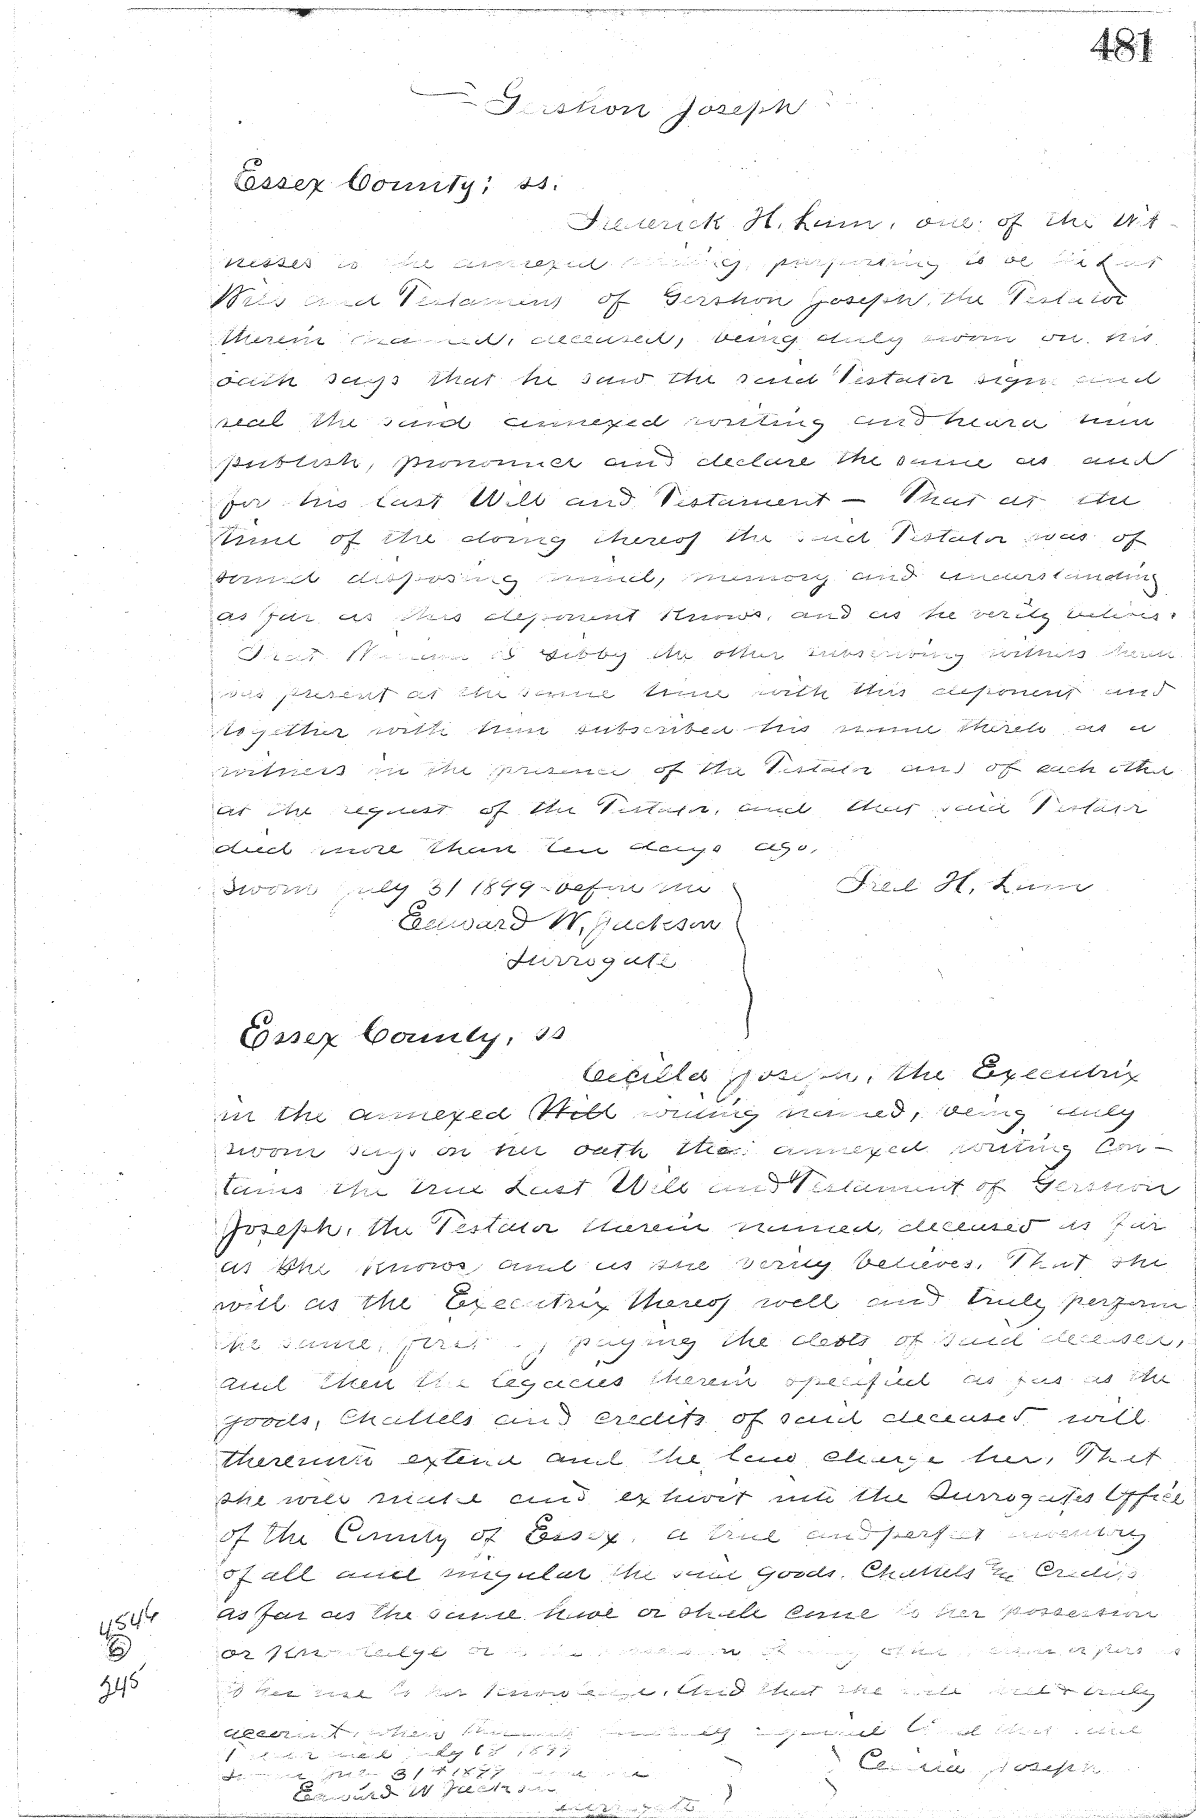 481
Gershon Joseph
Essex County; ss.
Frederick H. Lum, one of the Wit-
nesses to the annexed writing, purporting to be the last
Will and Testament of Gershon Joseph, the Testator
therein named, deceased, being duly sworn on his
oath says that he saw the said Testator sign and
seal the said annexed writing and heard him
publish, pronounce and declare the same as and
for his last Will and Testament - That at the
time of the doing thereof the said Testator was of
sound disposing mind, memory and understanding
as far as this deponent knows, and as he verily believes.
That Libby the other subscribing witness
was present at the same time with this deponent and
together with him subscribed his name thereto as a
witness in the presence of the Testator and of each other
at the request of the Testator, and that said Testator
died more than ten days ago.
Sworn July 31 1899 before me
Fred H. Lum
Edward W. Jackson
Surrogate
Essex County, ss
Cecilia Joseph, the Executrix
in the annexed Will writing named, being duly
sworn says on her oath the annexed writing con-
tains the true Last Will and Testament of Gershon
Joseph, the Testator therein named, deceased as far
as she knows and as she verily believes. That she
will as the Executrix thereof well and truly perform
the same, first by paying the debts of said deceased,
and then the legacies therein specified as far as the
goods, Chattels and credits of said deceased will
thereunto extend and the law charge her. That
she will make and exhibit into the Surrogates Office
of the County of Essex, a true and perfect inventory
of all and singular the said goods. Chattels and Credits
as far as the same have or shall come to her possession
or knowledge or
to her use to her knowledge. And that she will well & truly
account when thereunto lawfully required and that said
Testator died July 1899
Cecilia Joseph
Sworn July 31st 1899 before me
Edward W Jackson
Surrogate
4546
6
345